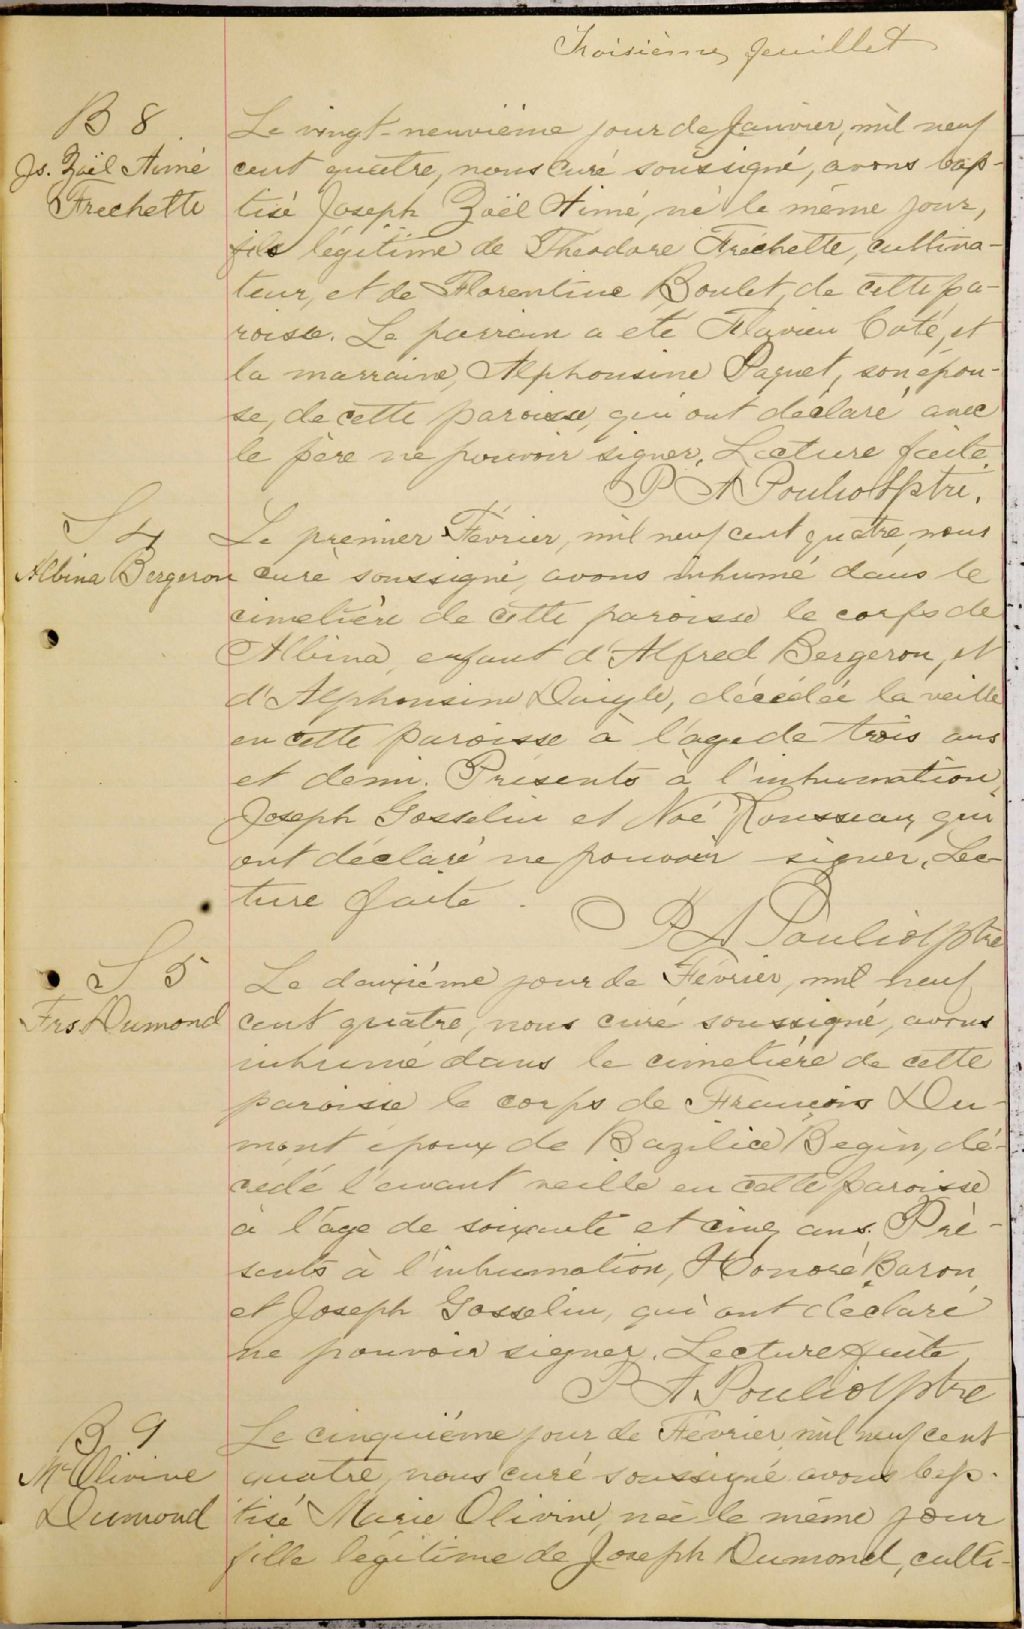 Troisième feuillet
B 8
Js. Zoël Aimé
Frechette
Le vingt-neuvième jour de Janvier, mil neuf
cent quatre, nous curé soussigné, avons bap-
tisé Joseph Zoël Aimé, né le même jour,
fils légitime de Théodore Fréchette, cultiva-
teur, et de Florentine Boulet, de cette pa-
roisse. Le parrain a été Flavien Coté, et
la marraine, Alphonsine Paquet, son épou-
se, de cette paroisse, qui ont déclaré avec
le père ne pouvoir signer. Lecture faite.
P A Pouliot ptre.
S 4
Albina Bergeron
Le premier Février, mil neuf cent quatre, nous
curé soussigné, avons inhumé dans le
cimetière de cette paroisse le corps de
Albina, enfant d'Alfred Bergeron, et
d'Alphonsine Daigle, décédée la veille
en cette paroisse à l'age de trois ans
et demi. Présents à l'inhumation,
Joseph Gosselin et Noé Rousseau, qui
ont déclaré ne pouvoir signer. Lec-
ture faite.
P A Pouliot ptre
S 5
Frs Dumond
Le deuxième jour de Février, mil neuf
cent quatre, nous curé soussigné, avons
inhumé dans le cimetière de cette
paroisse le corps de François Du-
mont époux de Bazilice Begin, dé-
cédé l'avant veille en cette paroisse
à l'age de soixante et cinq ans. Pré-
sents à l'inhumation, Honoré Baron
et Joseph Gosselin, qui ont déclaré
ne pouvoir signer. Lecture faite
P A. Pouliot ptre
B 9
Me Olivine
Dumond
Le cinquième jour de Février, mil neuf cent
quatre, nous curé soussigné avons bap-
tisé Marie Olivine, née le même jour
fille légitime de Joseph Dumond, culti-